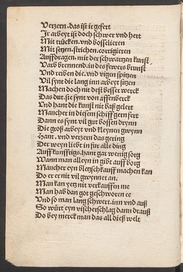 Verzern. das ist ir gefert
Ir arbeyt ist doch schwer vnd hert
Mit rucken. vnd bossēlieren
Mit segen. streichen. corrigieren
Auffdragen. mit der schwartzen kunst
Varb brennend. in des fewers brunst
Vnd reiben die. vnd vigen spitzen
Vil synt die lang inn arbeyt sitzen
Machen doch nit dest besser werck
Das dut. sie synt von affenberck
Vnd hant die kunst nit baß gelert
Mancher in disem schiff gern fert
Dann es synt vil gut gesellen dryn
Die groß arbeyt vnd kleynen gwynn
Hant. vnd verzern das gering
Der weyn lieb in für alle ding
Auff künfftigs. hant gar wenig sorg
Wann man alleyn in gibt auff borg
Mancher eyn bleyschkauff machen kan
Do er ernit vil gwynnet an.
Man kan yetz nit verkauffen me
Man hab dan got geschworen ee
Vnd so man lang schwert. inn vnd auß
So würt eyn vischeschlag dann drauß
Do bey merck man das all die welt